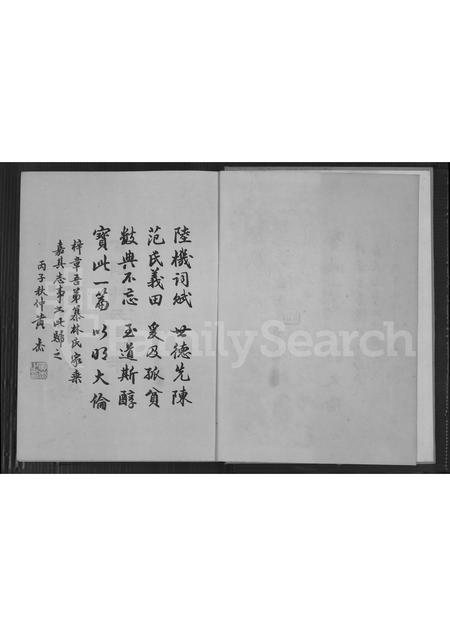 陸機詞賦 世德先陳
范氏義田 爰及孤貧
數典不忘 至道斯醇
寶此一篇 以明大倫
梓章吾弟纂林氏家乘
嘉其志事工此歸之
丙子秋仲黄
FamilySearch